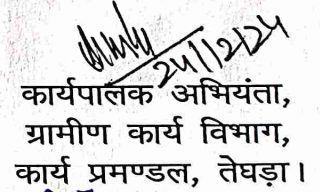 24/12/24
कार्यपालक अभियंता,
ग्रामीण कार्य विभाग,
कार्य प्रमण्डल, तेघड़ा।